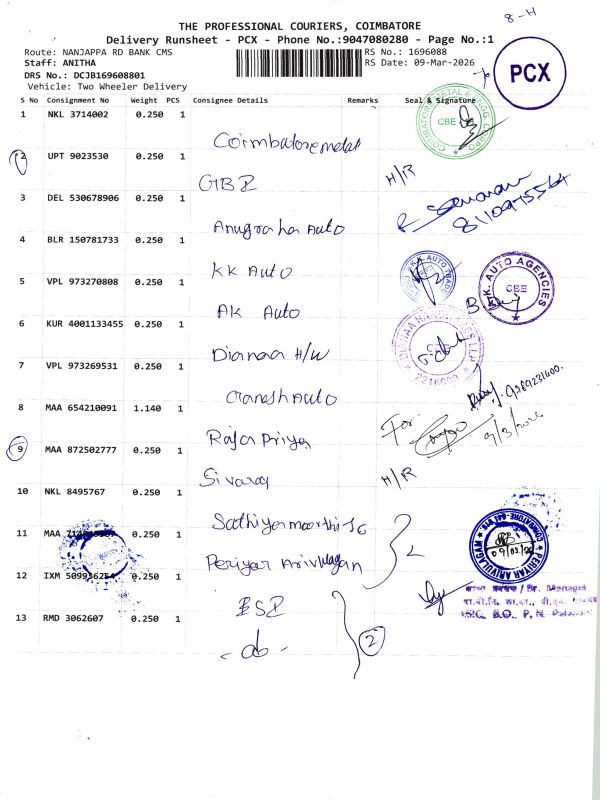 8-H
THE PROFESSIONAL COURIERS, COIMBATORE
Delivery Runsheet - PCX - Phone No.:9047080280 - Page No.:1
Route: NANJAPPA RD BANK CMS
RS No.: 1696088
Staff: ANITHA
RS Date: 09-Mar-2026
DRS No.: DCJB169608801
Vehicle: Two Wheeler Delivery
PCX
S No Consignment No Weight PCS Consignee Details Remarks Seal & Signature
1 NKL 3714002 0.250 1
CBE
Coimbatore metal
2 UPT 9023530 0.250 1
GBZ H/R
3 DEL 530678906 0.250 1
8110975564
Anugraha Auto
4 BLR 150781733 0.250 1
KK Auto
5 VPL 973270808 0.250 1
K.K. AUTO AGENCIES
CBE
AK Auto
6 KUR 4001133455 0.250 1
Dianaa H/W
2216000
7 VPL 973269531 0.250 1
Ganesh Auto
8 MAA 654210091 1.140 1
For
9/3/2026
Raja Priya
9 MAA 872502777 0.250 1
Sivaraj H/R
10 NKL 8495767 0.250 1
Sathiyamoorthi
11 MAA 0.250 1
PERIYAR ARIVULAGAM
09/03/26
Periyar Arivulagan
12 IXM 509936254 0.250 1
/Br. Manager
B.O., P. N.
13 RMD 3062607 0.250 1
- do -
2